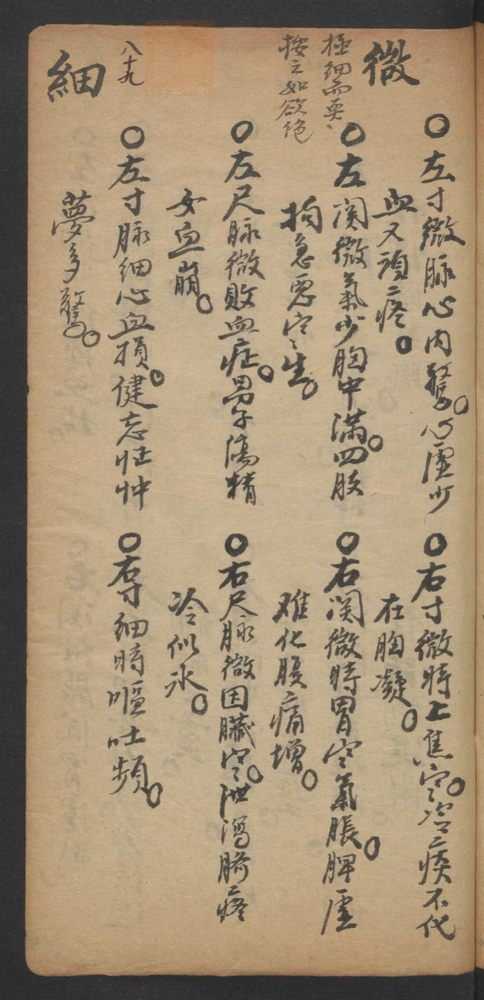 微
極細而耎
按之如欲絶
〇左寸微脉心内驚。心虛少
血又頭疼。
〇右寸微時上焦寒。冷痰不化
在胸凝。
〇左関微氣少胸中滿。四肢
拘急惡寒生。
〇右関微時胃寒氣脹。脾虛
难化腹痛增。
〇左尺脉微敗血症。男子傷精
女血崩。
〇右尺脉微因臓寒。泄瀉臍疼
冷似氷。
八十九
細
〇左寸脉細心血損。健忘怔忡
夢多驚。
〇右寸細時嘔吐頻。